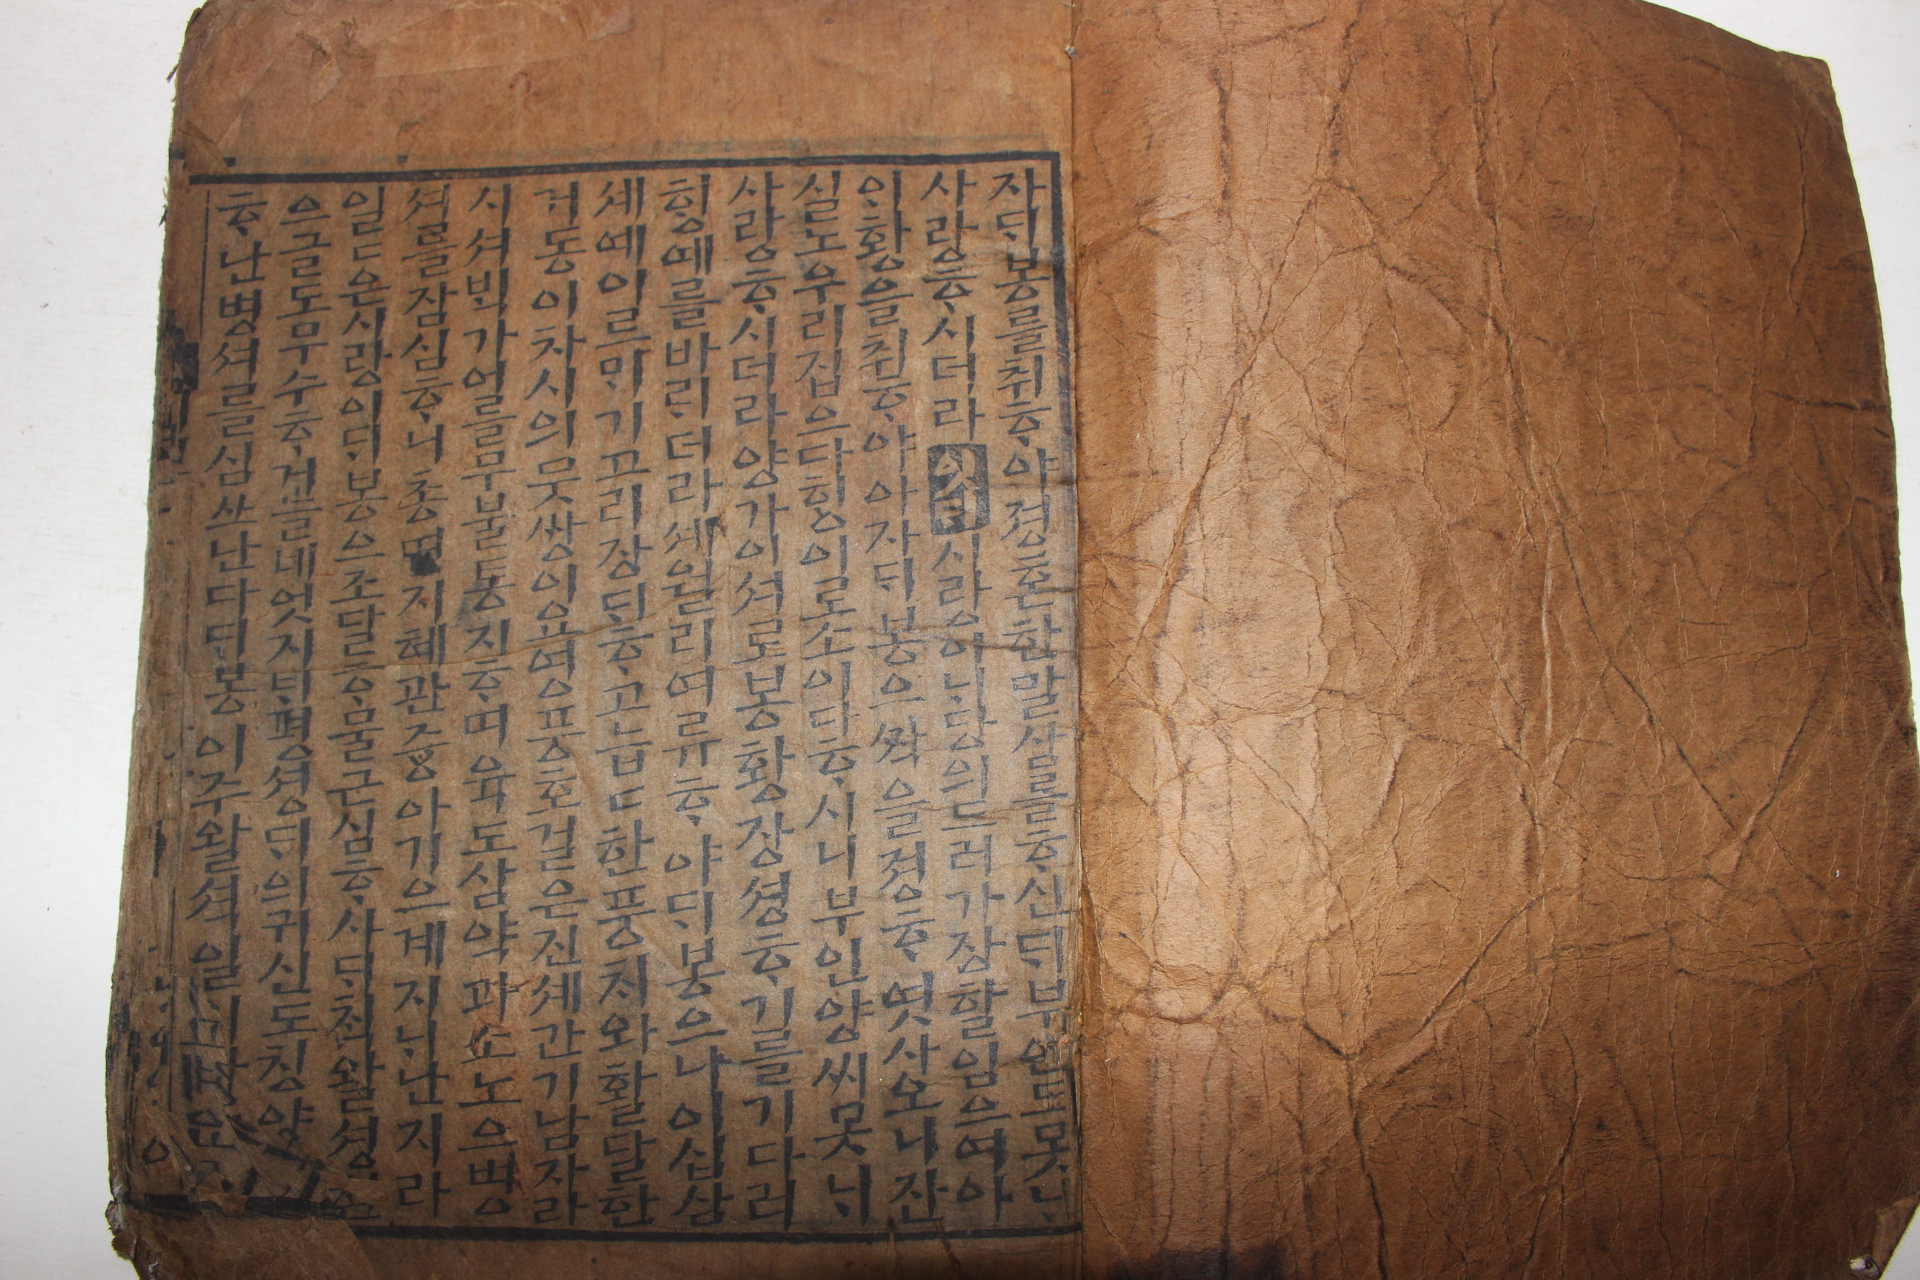 자ᄃᆡ봉를취ᄒᆞ야졍혼한말삼를ᄒᆞ신ᄃᆡ부인도못ᄂᆡ
사랑ᄒᆞ시더라 사랑이ᄂᆡ당의드러가장할임으여아
이황을친ᄒᆞ야아자ᄃᆡ봉으싹을졍ᄒᆞ엿사오니잔
실노우리집으다ᄒᆡᆼ이로소이다ᄒᆞ시니부인양씨못ᄂᆡ
사랑ᄒᆞ시더라양가이셔로봉황장셩ᄒᆞ기를기다리
ᄒᆡᆼ예를바ᄅᆡ더라셰월리여류ᄒᆞ야ᄃᆡ봉으나이십삼
셰예이르ᄆᆡ기고리장ᄃᆡᄒᆞ고늡드한풍치와활달한
거동이차시의뭇쌍이요영풍호걸은진셰간기남자라
시셔ᄇᆡᆨ가얼을무불통지ᄒᆞ며육도삼약과손노으병
셔를잠심ᄒᆞ니총명지혜관즁아기으게지ᄂᆡ난지라
일 은사랑이ᄃᆡ봉으조달ᄒᆞ물근심ᄒᆞ사ᄃᆡ칙왈셩
으글도무수ᄒᆞ거늘네엇지ᄐᆡ평셩ᄃᆡ의귀신도칭양
ᄒᆞ난병셔를심쓰난다ᄃᆡ봉이주왈셕일